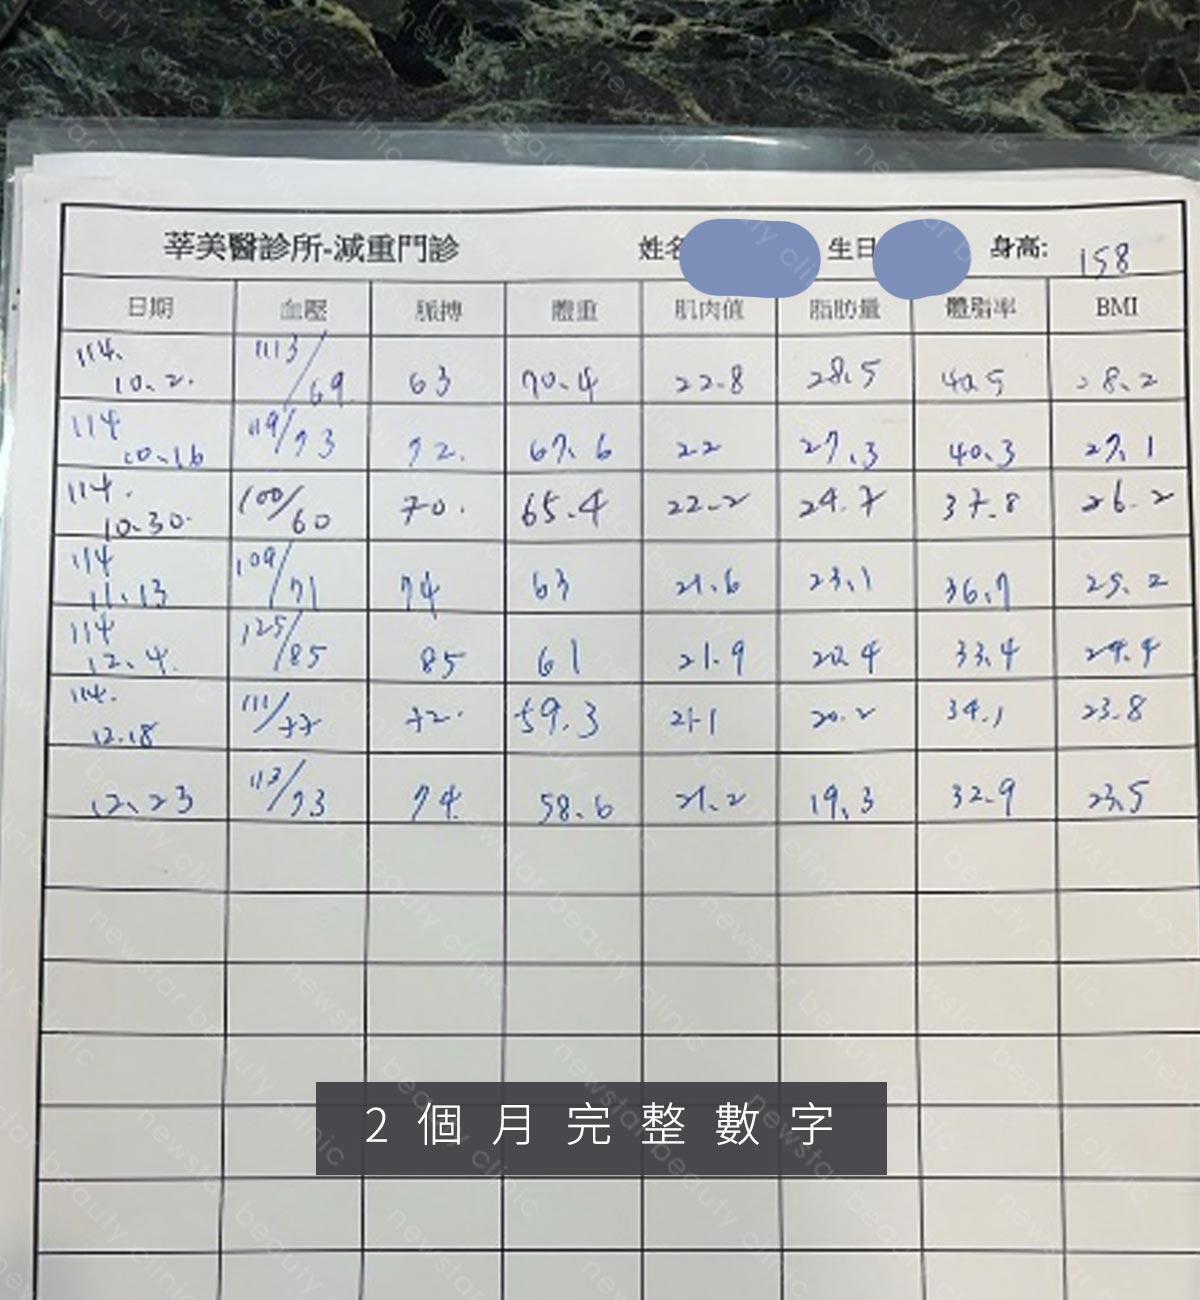 莘美醫診所-減重門診 姓名 生日 身高: 158
日期 血壓 脈搏 體重 肌肉值 脂肪量 體脂率 BMI
114. 10.2. 113/69 63 70.4 22.8 28.5 40.5 28.2
114 10.16 119/73 72. 67.6 22 27.3 40.3 27.1
114. 10.30. 100/60 70. 65.4 22.2 24.7 37.8 26.2
114 11.13 109/71 74 63 21.6 23.1 36.7 25.2
114 12.4. 125/85 85 61 21.9 20.4 33.4 24.4
114. 12.18 111/77 72. 59.3 21.1 20.2 34.1 23.8
12.23 113/73 74 58.6 21.2 19.3 32.9 23.5
2個月完整數字
newstar beauty clinic